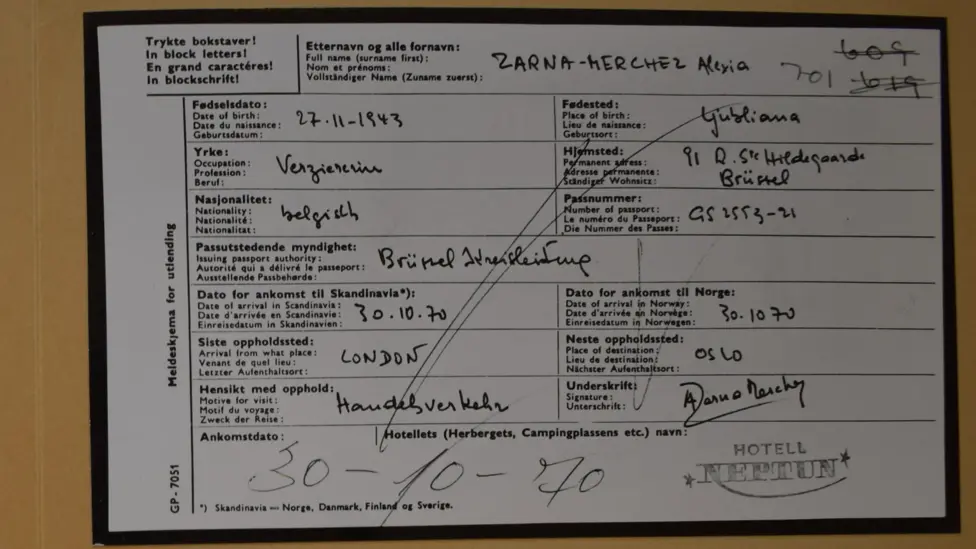 Trykte bokstaver!
In block letters!
En grand caractéres!
In blockschrift!
Etternavn og alle fornavn:
Full name (surname first):
Nom et prénoms:
Vollständiger Name (Zuname zuerst):
ZARNA-MERCHEZ Alexia
609
701 619
Fødselsdato:
Date of birth:
Date du naissance:
Geburtsdatum:
27.11-1943
Fødested:
Place of birth:
Lieu de naissance:
Geburtsort:
Ljubliana
Yrke:
Occupation:
Profession:
Beruf:
Verziererin
Hjemsted:
Permanent adress:
Adresse permanente:
Ständiger Wohnsitz:
91 R. Ste Hildegaarde
Brüssel
Nasjonalitet:
Nationality:
Nationalité:
Nationalitat:
belgisch
Passnummer:
Number of passport:
Le numéro du Passeport:
Die Nummer des Passes:
GS 2553-21
Passutstedende myndighet:
Issuing passport authority:
Autorité qui a délivré le passeport:
Ausstellende Passbehørde:
Brüssel Kreisleitung
Dato for ankomst til Skandinavia*):
Date of arrival in Scandinavia:
Date d'arrivée en Scandinavie:
Einreisedatum in Skandinavien:
30.10.70
Dato for ankomst til Norge:
Date of arrival in Norway:
Date d'arrivée en Norvège:
Einreisedatum in Norwegen:
30.10 70
Siste oppholdssted:
Arrival from what place:
Venant de quel lieu:
Letzter Aufenthaltsort:
LONDON
Neste oppholdssted:
Place of destination:
Lieu de destination:
Nächster Aufenthaltsort:
OSLO
Hensikt med opphold:
Motive for visit:
Motif du voyage:
Zweck der Reise:
Handelsverkehr
Underskrift:
Signature:
Unterschrift:
AZarna Merchez
Ankomstdato:
30-10-70
Hotellets (Herbergets, Campingplassens etc.) navn:
HOTELL
NEPTUN
*) Skandinavia = Norge, Danmark, Finland og Sverige.
Meldeskjema for utlending
GP - 7051